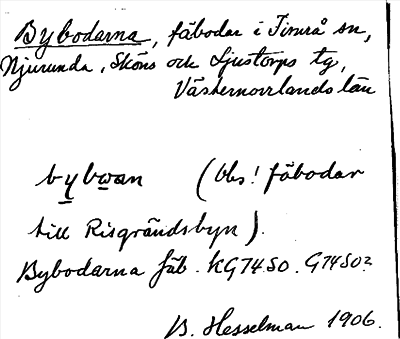 Bybodarna, fäbodar i Timrå sn,
Njurunda, Sköns och Ljustorps tg,
Västernorrlands län
bybwan (Obs! fäbodar
till Risgrändsbyn).
Bybodarna fäb. KG74SO. G74SO2
B. Hesselman 1906.